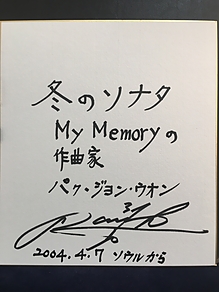 冬のソナタ
My Memoryの
作曲家
パク・ジョン・ウオン
2004.4.7 ソウルから